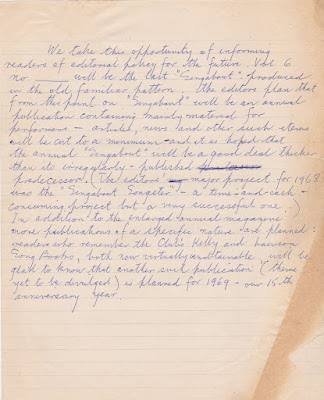 We take this opportunity of informing
readers of editorial policy for the future. Vol 6
no ____ will be the last "Singabout" produced
in the old familiar pattern. The editors plan that
from this point on "Singabout" will be an annual
publication containing mainly material for
performers - articles, news and other such items
will be cut to a minimum - and it is hoped that
the annual "Singabout" will be a good deal thicker
than its irregularly-published
predecessor. (The editors' major project for 1968
was the "Singabout Songster" - a time-and-cash-
consuming project but a very successful one!)
In addition to the enlarged annual magazine
more publications of a specific nature are planned:
readers who remember the Ned Kelly and Lawson
Song Books, both now virtually unobtainable, will be
glad to know that another such publication (theme
yet to be divulged) is planned for 1969 - our 15th
anniversary year.